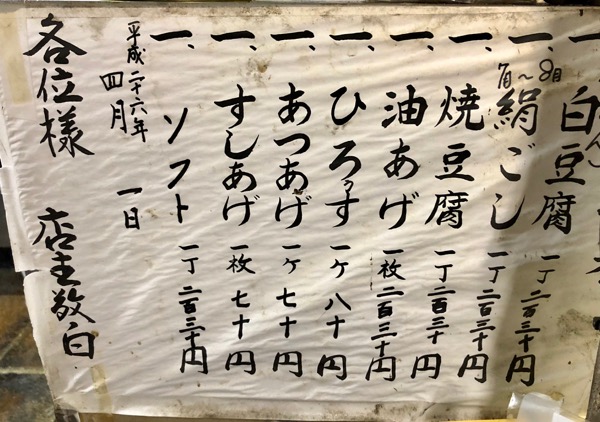 一、白豆腐 一丁 二百三十円
一、絹ごし 一丁 二百三十円
7月〜8月
一、焼豆腐 一丁 二百三十円
一、油あげ 一枚 二百三十円
一、ひろうす 一ケ 八十円
一、あつあげ 一ケ 七十円
一、すしあげ 一枚 七十円
一、ソフト 一丁 二百三十円
平成二十六年
四月 一日
各位様 店主敬白